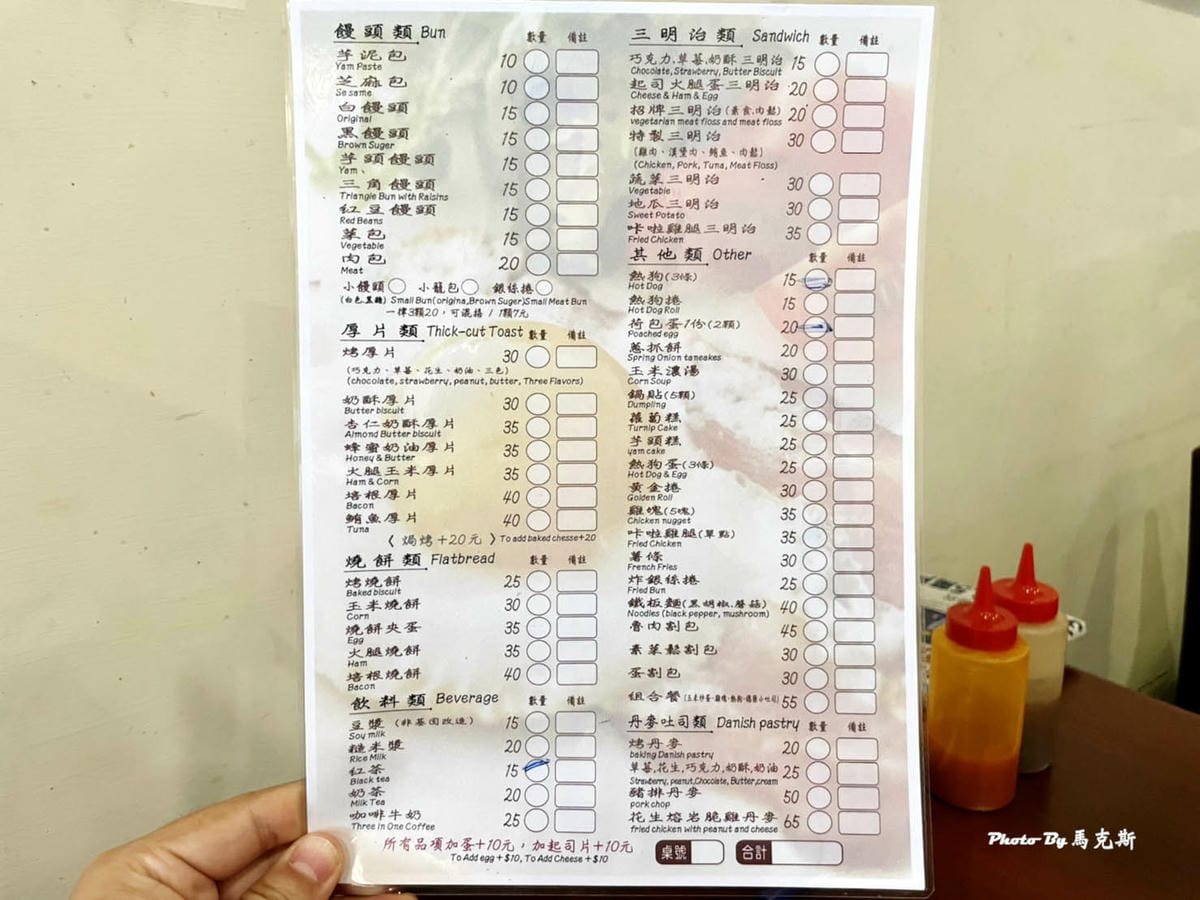 饅頭類 Bun 數量 備註
芋泥包 10
Yam Paste
芝麻包 10
Sesame
白饅頭 15
Original
黑饅頭 15
Brown Suger
芋頭饅頭 15
Yam
三角饅頭 15
Triangle Bun with Raisins
紅豆饅頭 15
Red Beans
菜包 15
Vegetable
肉包 20
Meat
小饅頭 小籠包 銀絲捲
(白色.黑糖) Small Bun(origina,Brown Suger)Small Meat Bun
一律3顆20,可混搭 / 1顆7元
厚片類 Thick-cut Toast 數量 備註
烤厚片 30
(巧克力、草莓、花生、奶油、三色)
(chocolate, strawberry, peanut, butter, Three Flavors)
奶酥厚片 30
Butter biscuit
杏仁奶酥厚片 35
Almond Butter biscuit
蜂蜜奶油厚片 35
Honey & Butter
火腿玉米厚片 35
Ham & Corn
培根厚片 40
Bacon
鮪魚厚片 40
Tuna
〈 焗烤+20元 〉To add baked chesse+20
燒餅類 Flatbread 數量 備註
烤燒餅 25
Baked biscuit
玉米燒餅 30
Corn
燒餅夾蛋 35
Egg
火腿燒餅 35
Ham
培根燒餅 40
Bacon
飲料類 Beverage 數量 備註
豆漿 (非基因改造) 15
Soy milk
糙米漿 20
Rice Milk
紅茶 15
Black tea
奶茶 20
Milk Tea
咖啡牛奶 25
Three in One Coffee
所有品項加蛋+10元,加起司片+10元
To Add egg +$10, To Add Cheese +$10
三明治類 Sandwich 數量 備註
巧克力,草莓,奶酥 三明治 15
Chocolate, Strawberry, Butter Biscuit
起司火腿蛋三明治 20
Cheese & Ham & Egg
招牌三明治(素食,肉鬆) 20
vegetarian meat floss and meat floss
特製三明治 30
(雞肉、漢堡肉、鮪魚、肉鬆)
(Chicken, Pork, Tuna, Meat Floss)
蔬菜三明治 30
Vegetable
地瓜三明治 30
Sweet Potato
咔啦雞腿三明治 35
Fried Chicken
其他類 Other 數量 備註
熱狗(3條) 15
Hot Dog
熱狗捲 15
Hot Dog Roll
荷包蛋1份(2顆) 20
Poached egg
蔥抓餅 20
Spring Onion taneakes
玉米濃湯 30
Corn Soup
鍋貼(5顆) 25
Dumpling
蘿蔔糕 25
Turnip Cake
芋頭糕 25
yam cake
熱狗蛋(3條) 25
Hot Dog & Egg
黃金捲 30
Golden Roll
雞塊(5塊) 35
Chicken nugget
咔啦雞腿(單點) 35
Fried Chicken
薯條 30
French Fries
炸銀絲捲 25
Fried Bun
鐵板麵(黑胡椒.蘑菇) 40
Noodles (black pepper, mushroom)
魯肉割包 45
素菜鬆割包 30
蛋割包 30
組合餐 55
丹麥吐司類 Danish pastry 數量 備註
烤丹麥 20
baking Danish pastry
草莓,花生,巧克力,奶酥,奶油 25
Strawberry, peanut,Chocolate, Butter,cream
豬排丹麥 50
pork chop
花生熔岩脆雞丹麥 65
fried chicken with peanut and cheese
桌號 合計
Photo By 馬克斯